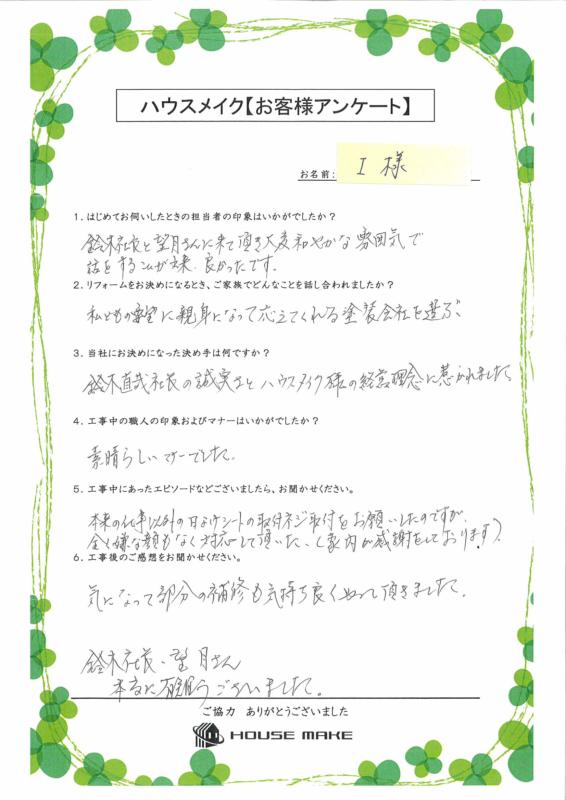 ハウスメイク【お客様アンケート】
お名前: I 様
1. はじめてお伺いしたときの担当者の印象はいかがでしたか？
鈴木社長と望月さんに来て頂き大変和やかな雰囲気で
話をすることが出来、良かったです。
2. リフォームをお決めになるとき、ご家族でどんなことを話し合われましたか？
私どもの要望に親身になって応えてくれる塗装会社を選ぶ、
3. 当社にお決めになった決め手は何ですか？
鈴木直哉社長の誠実さとハウスメイク様の経営理念に惹かれました
4. 工事中の職人の印象およびマナーはいかがでしたか？
素晴らしいマナーでした。
5. 工事中にあったエピソードなどございましたら、お聞かせください。
本来の仕事以外の日よけシートの取付ネジ取付をお願いしたのですが、
全く嫌な顔もなく対応して頂いた、(家内が感謝をしております)
6. 工事後のご感想をお聞かせください。
気になって部分の補修も気持ち良くやって頂きました。
鈴木社長、望月さん
本当に有難うございました。
ご協力 ありがとうございました
HOUSE MAKE